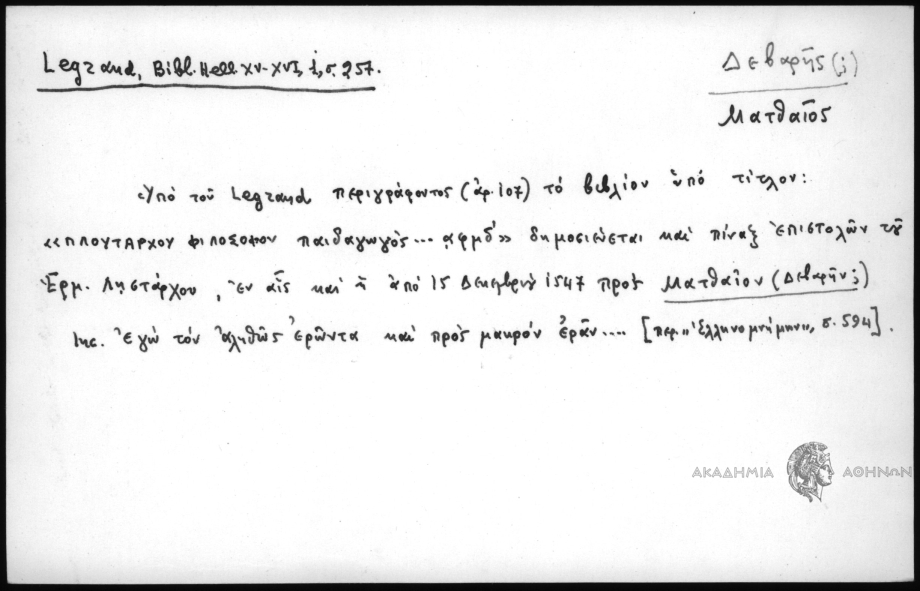 Legrand, Bibl. Hell. XV-XVI, i, σ. 257.
Δεβαρῆς (;)
Ματθαῖος
Ὑπὸ τοῦ Legrand περιγράφοντος (ἀρ. 107) τὸ βιβλίον ὑπὸ τίτλον:
«ΠΛΟΥΤΑΡΧΟΥ ΦΙΛΟΣΟΦΟΥ παιδαγωγὸς... ͵αφμδʹ» δημοσιεύεται καὶ πίναξ ἐπιστολῶν τοῦ
Ἑρμ. Λῃστάρχου, ἐν αἷς καὶ ἡ ἀπὸ 15 Δεκεμβρίου 1547 πρὸς Ματθαῖον (Δεβαρῆν;)
Inc. Ἐγὼ τὸν ἀληθῶς ἐρῶντα καὶ πρὸς μακρὸν ἐρᾶν.... [περ. „Ἑλληνομνήμην", σ. 594].
ΑΚΑΔΗΜΙΑ ΑΘΗΝΩΝ